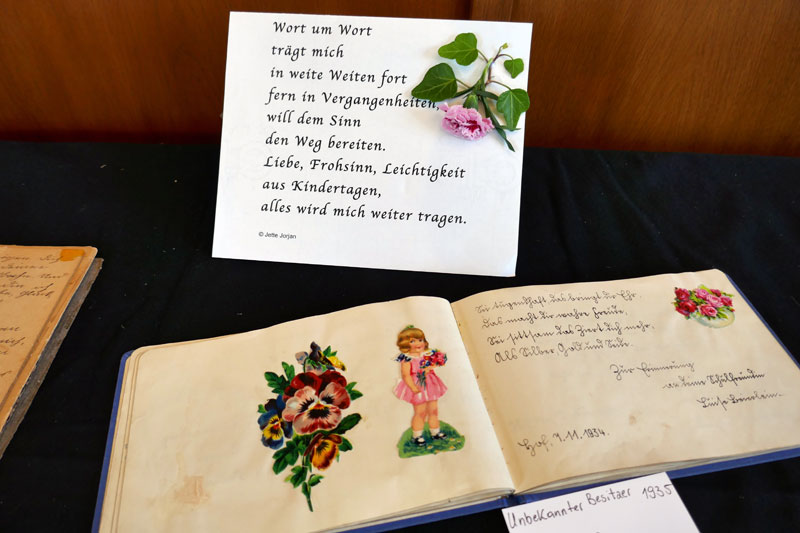 Wort um Wort
trägt mich
in weite Weiten fort
fern in Vergangenheiten,
will dem Sinn
den Weg bereiten.
Liebe, Frohsinn, Leichtigkeit
aus Kindertagen,
alles wird mich weiter tragen.
© Jette Jorjan
Sei tugendhaft, das bringt dir Ehr,
Das macht dir wahre Freude,
Sei sittsam das ziert dich mehr,
Als Silber Gold und Seide.
Zur Erinnerung
an deine Schulfreundin
Luise
Hof, 7.11.1934.
Unbekannter Besitzer 1935